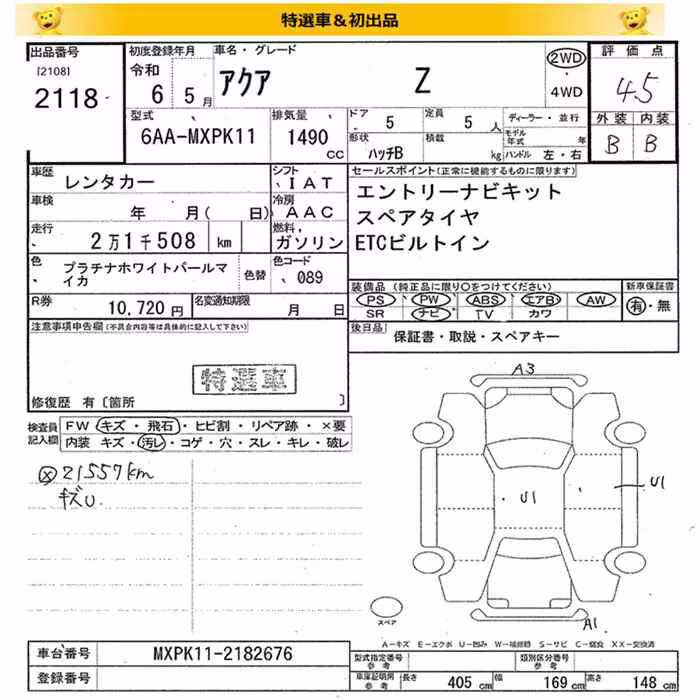 特選車＆初出品
出品番号
[2108]
2118
初度登録年月
令和
6 5月
車名・グレード
アクア Z
2WD
4WD
評価点
4.5
外装 内装
B B
型式
6AA-MXPK11
排気量
1490
CC
ドア
5
定員
5 人
形状
ハッチB
積載
kg
ディーラー・並行
モデル年式 年
ハンドル 左・右
車歴
レンタカー
シフト
IAT
車検
年 月( 日)
冷房
AAC
走行
2万1千508 km
燃料
ガソリン
色
プラチナホワイトパールマイカ
色替
色コード
089
R券
10,720円
名変通知期限
月 日
セールスポイント(正常に機能するものに限ります)
エントリーナビキット
スペアタイヤ
ETCビルトイン
装備品 (純正品に限り○をつけてください)
PS PW ABS エアB AW
SR ナビ TV カワ
新車保証書
有・無
後日品
保証書・取説・スペアキー
注意事項申告欄(不具合内容等は具体的に記入して下さい)
特選車
修復歴 有〔箇所 〕
検査員記入欄
FW キズ・飛石・ヒビ割・リペア跡・×要
内装 キズ・汚レ・コゲ・穴・スレ・キレ・破レ
21557km
キズU
A3
U1
U1
A1
スペア
A-キズ E-エクボ U-凹み W-補修跡 S-サビ C-腐食 XX-交換済
車台番号
MXPK11-2182676
登録番号
型式指定番号
参考
類別区分番号
参考
車庫証明用
参考
長さ 405 cm 幅 169 cm 高さ 148 cm